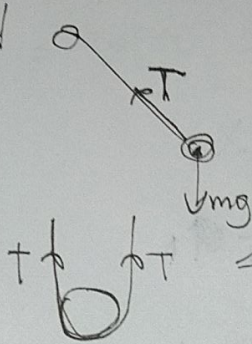 T
mg
T T =